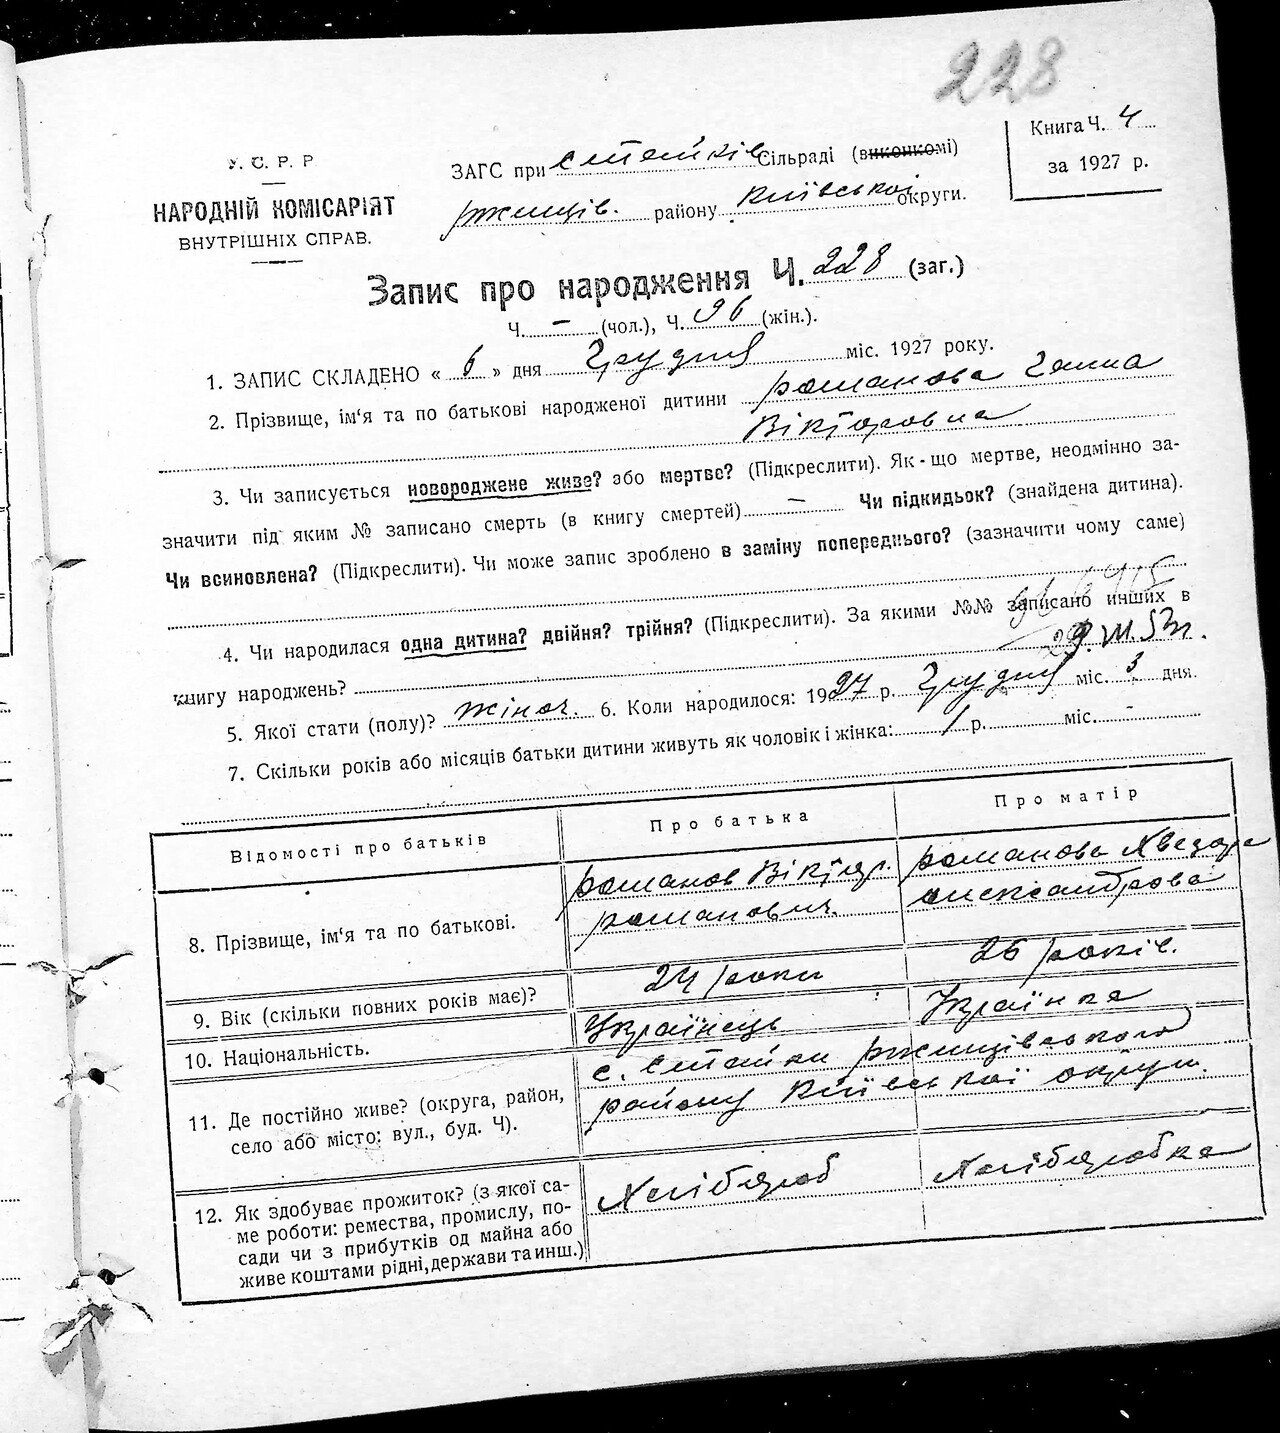 228
У. С. Р. Р
НАРОДНІЙ КОМІСАРІЯТ
ВНУТРІШНІХ СПРАВ.
ЗАГС при Стайків Сільраді (виконкомі)
Ржищів. району Київської округи.
Книга Ч. 4
за 1927 р.
Запис про народження Ч. 228 (заг.)
Ч. – (чол.), Ч. 96 (жін.).
1. ЗАПИС СКЛАДЕНО « 6 » дня Грудня міс. 1927 року.
2. Прізвище, ім'я та по батькові народженої дитини Романова Ганна
Вікторовна
3. Чи записується новороджене живе? або мертве? (Підкреслити). Як-що мертве, неодмінно за-
значити під яким № записано смерть (в книгу смертей) – Чи підкидьок? (знайдена дитина).
Чи всиновлена? (Підкреслити). Чи може запис зроблено в заміну попереднього? (зазначити чому саме)
4. Чи народилася одна дитина? двійня? трійня? (Підкреслити). За якими №№ записано инших в
книгу народжень?
5. Якої стати (полу)? жіноч. 6. Коли народилося: 1927 р. Грудня міс. 3 дня.
7. Скільки років або місяців батьки дитини живуть як чоловік і жінка: 1 р. міс. -
Відомості про батьків
Про батька
Про матір
8. Прізвище, ім'я та по батькові.
Романов Віктор.
Романович.
Романова Хведора
Олександрова
9. Вік (скільки повних років має)?
24 роки
26 років.
10. Національність.
Українець
Українка
11. Де постійно живе? (округа, район,
село або місто: вул., буд. Ч).
с. Стайки Ржищівського
району Київської округи.
12. Як здобуває прожиток? (з якої са-
ме роботи: ремества, промислу, по-
сади чи з прибутків од майна або
живе коштами рідні, держави та инш.)
Хлібороб
Хліборобка